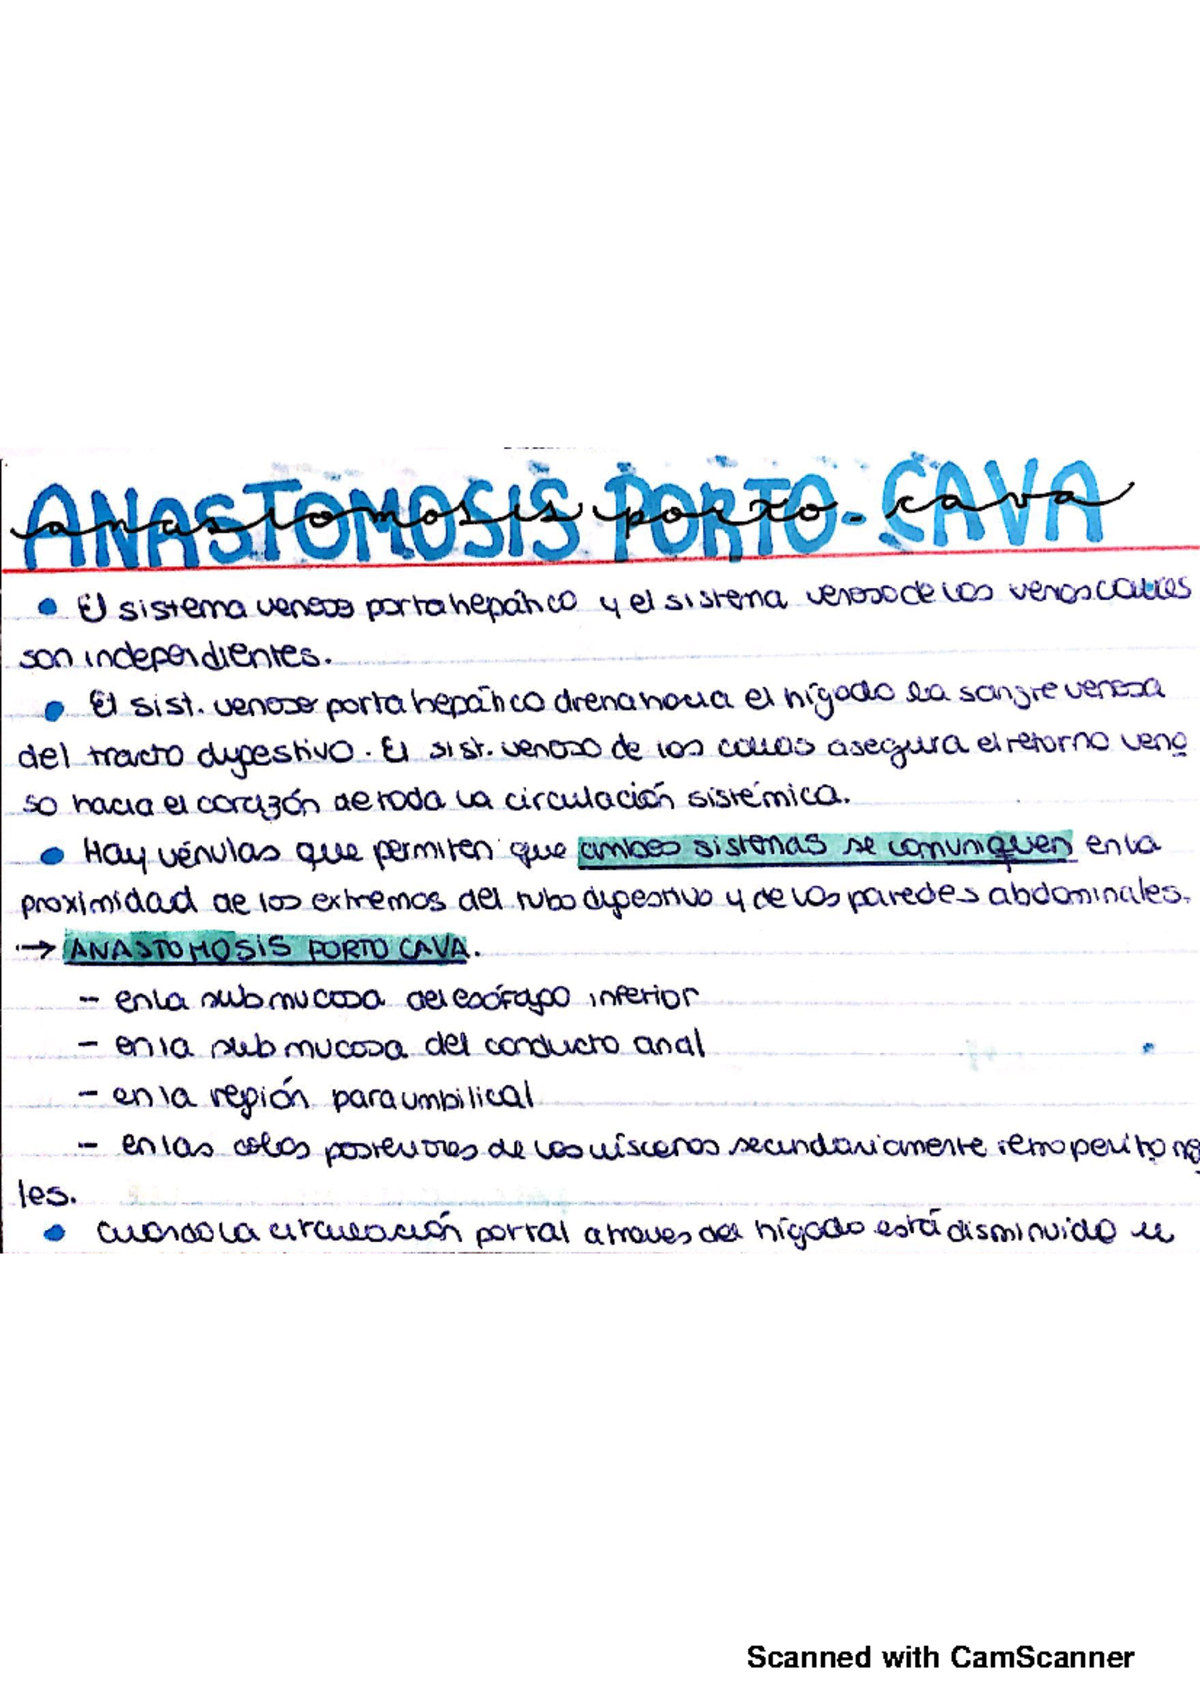 ANASTOMOSIS PORTO-CAVA
anastomosis porto-cava
• El sistema venoso porta hepático y el sistema venoso de las venas cavas
son independientes.
• El sist. venoso porta hepático drena hacia el hígado la sangre venosa
del tracto digestivo. El sist. venoso de las cavas asegura el retorno veno
so hacia el corazón de toda la circulación sistémica.
• Hay vénulas que permiten que ambos sistemas se comuniquen en la
proximidad de los extremos del tubo digestivo y de las paredes abdominales.
→ ANASTOMOSIS PORTO CAVA.
- en la submucosa del esófago inferior
- en la submucosa del conducto anal
- en la región paraumbilical
- en las caras posteriores de las vísceras secundariamente retroperitonea
les.
• Cuando la circulación portal a traves del hígado está disminuido u
Scanned with CamScanner